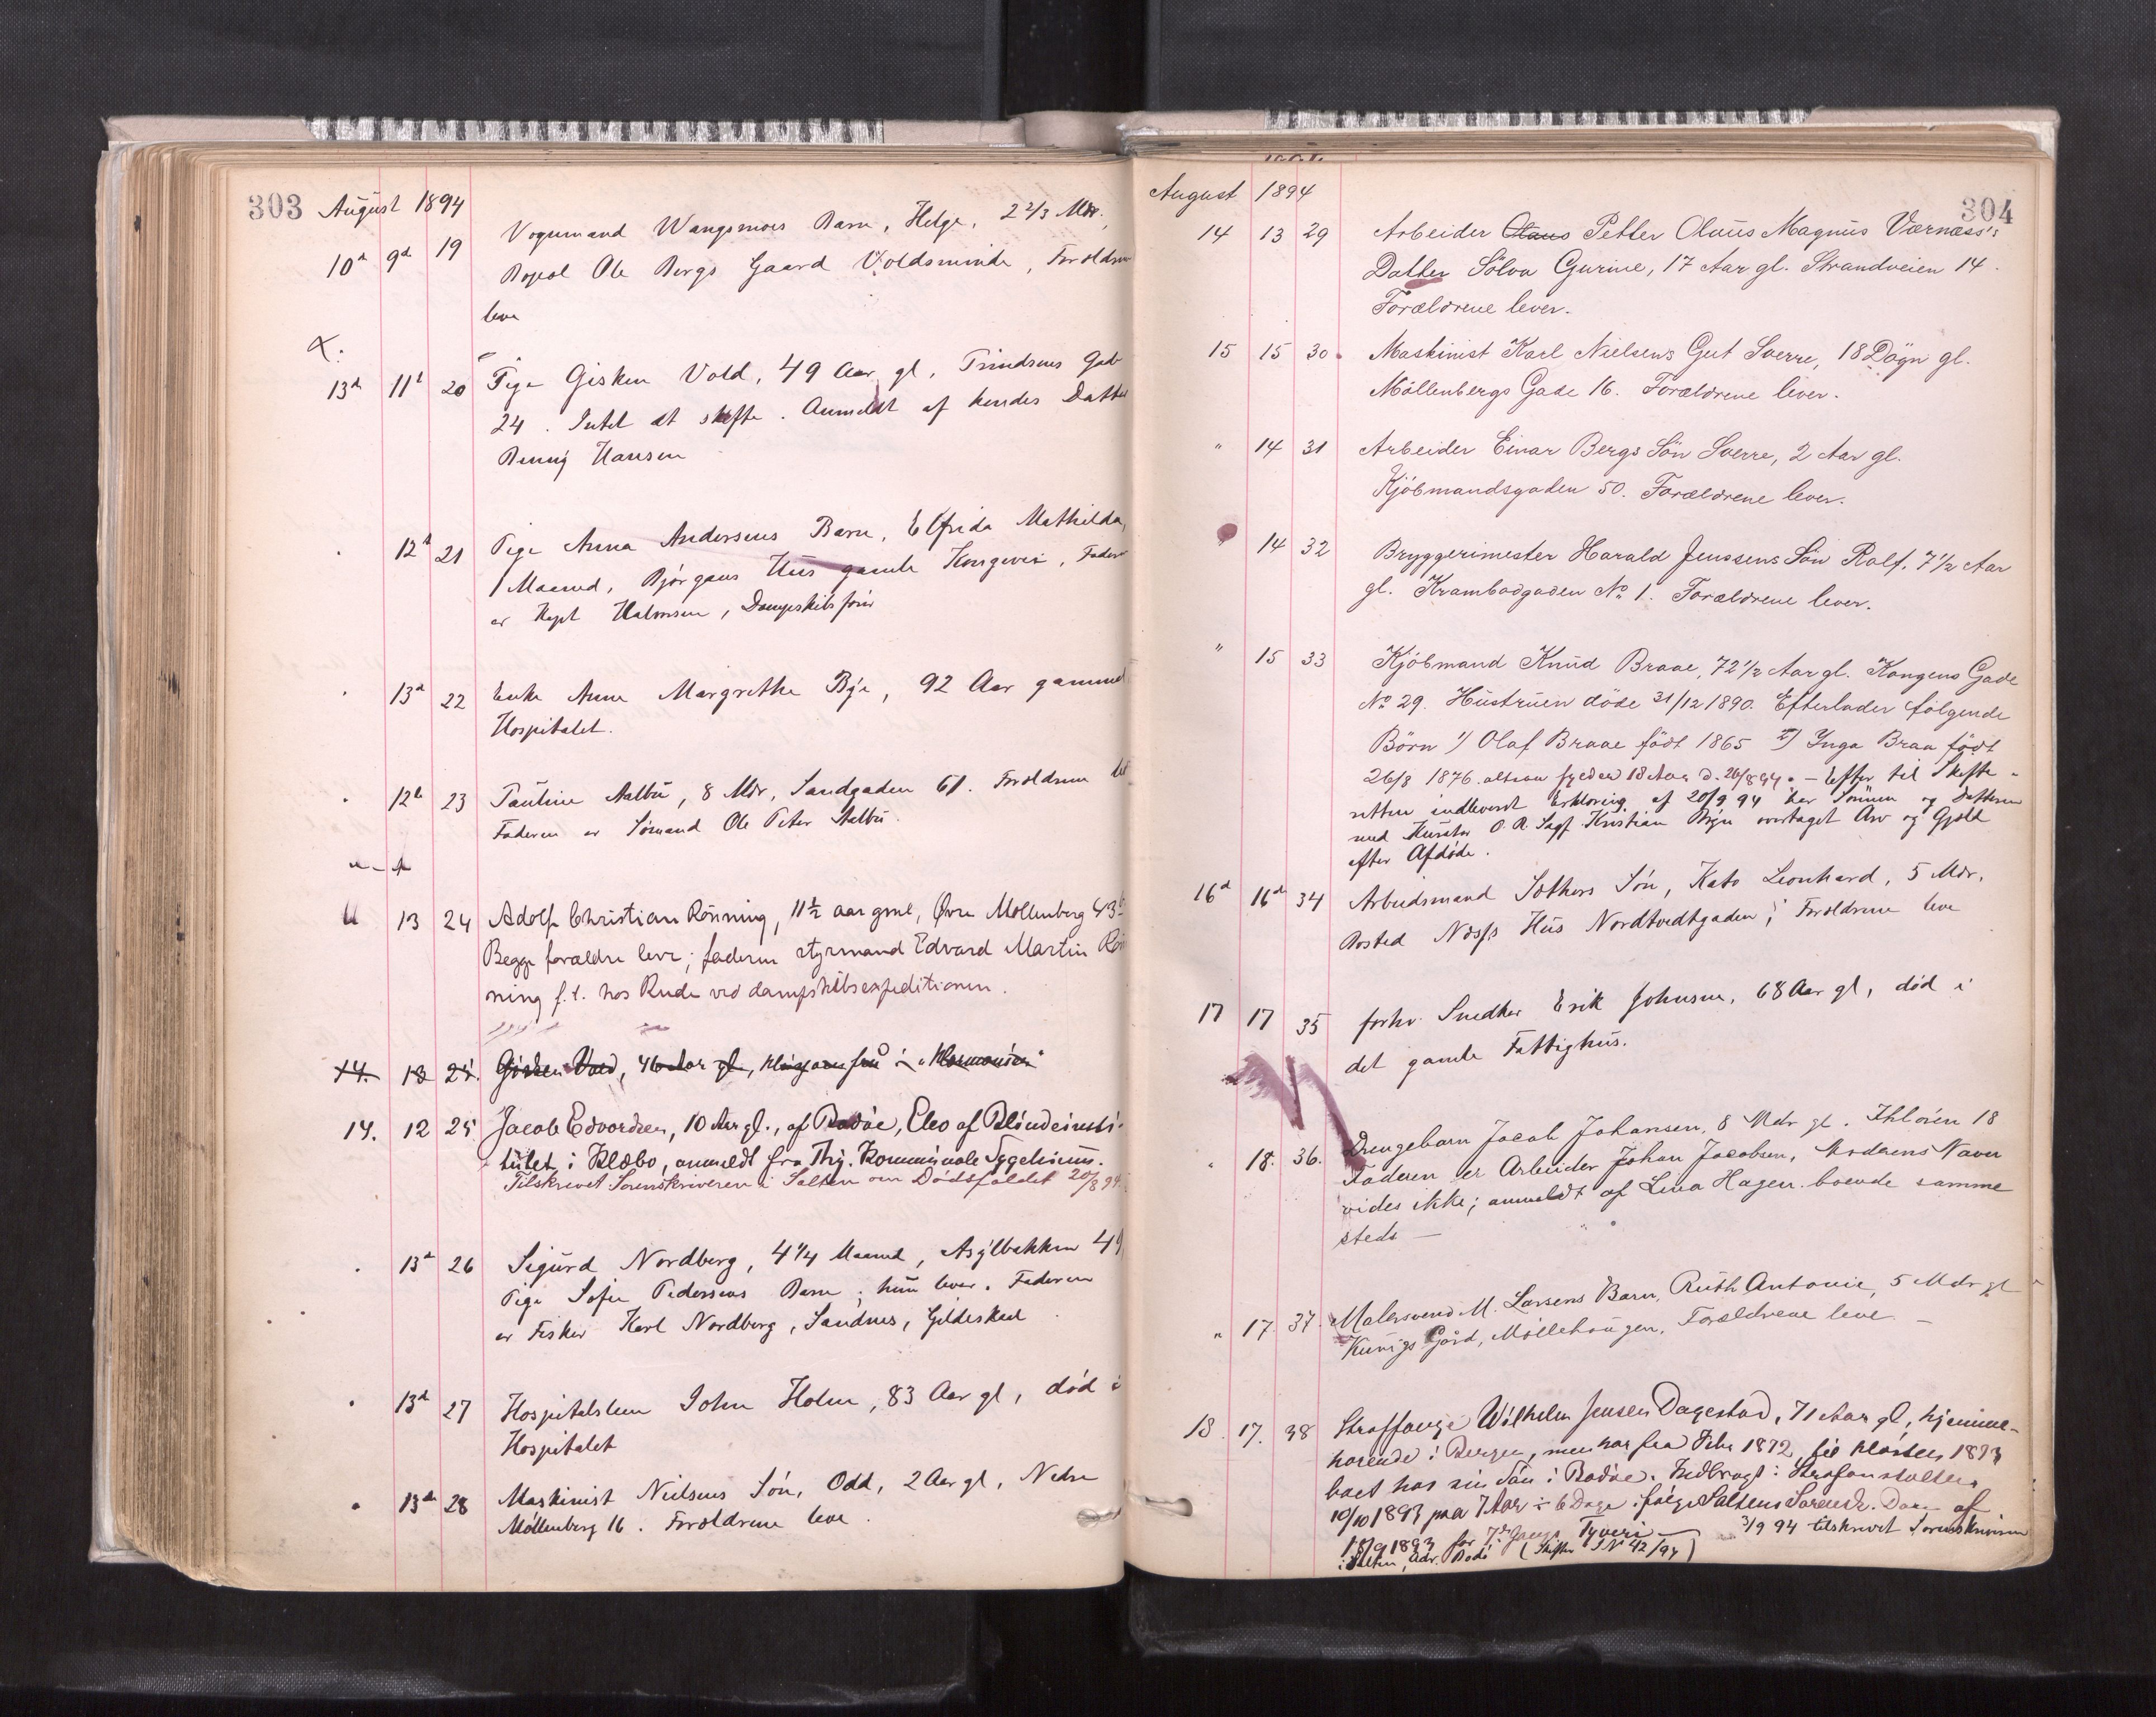 303 August 1894
10d 9d 19 Vognmand Wangsmoes Barn, Helge, 2 2/3 Mdr.,
Bopæl Ole Bergs Gaard Voldsminde, Forældrene
leve
13d 11d 20 Pige Gisken Vold, 49 Aar gl, Trindsens Gade
24. Intet at skifte. Anmeldt af hendes Datter
Benny Hansen
12d 21 Pige Anna Andersens Barn, Elfrida Mathilda,
1 Maaned, Bjørgans Hus gamle Kongevei, Faderen
er Kapt Halvorsen, Dampskibsfører
13d 22 Enke Anne Margrethe Bye, 92 Aar gammel
Hospitalet.
12d 23 Pauline Aalbu, 8 Mdr, Sandgaden 61. Forældrene leve
Faderen er Sømand Ole Peter Aalbu.
13 24 Adolf Christian Rönning, 11½ aar gml, Øvre Møllenberg 43b
Begge forældre leve; faderen styrmand Edvard Martin Rön
ning f.t. hos Rude ved dampskibsexpeditionen.
14. 13 25. Gisken Vold, 46 Aar gl,
14. 12 25 Jacob Edvardsen, 10 Aar gl., af Bodøe, Elev af Blindeinsti-
tutet i Klæbo, anmeldt fra Thj. Kommunale Sygehuus.
Tilskrevet Sorenskriveren i Salten om Dødsfaldet 20/8 94.
13d 26 Sigurd Nordberg, 4 1/4 Maaned, Asylbakken 49
Pige Sofie Pedersens Barn; hun lever. Faderen
er Fisker Karl Nordberg, Sandnes, Gildeskaal
13d 27 Hospitalslem John Holm, 83 Aar gl, død i
Hospitalet
13d 28 Maskinist Nielsens Søn, Odd, 2 Aar gl, Nedre
Møllenberg 16. Forældrene leve.
August 1894 304
14 13 29 Arbeider Olaus Petter Oluus Magnus Værnæss's
Datter Sölva Gurine, 17 Aar gl. Strandveien 14.
Forældrene lever.
15 15 30 Maskinist Karl Nielsens Gut Sverre, 18 Døgn gl.
Möllenbergs Gade 16. Forældrene lever.
" 14 31 Arbeider Einar Bergs Sön Sverre, 2 Aar gl.
Kjöbmandsgaden 50. Forældrene lever.
" 14 32 Bryggerimester Harald Jenssens Sön Ralf. 7½ Aar
gl. Krambodgaden No 1. Forældrene lever.
" 15 33 Kjöbmand Knud Braae, 72½ Aar gl. Kongens Gade
No 29. Hustruen döde 31/12 1890. Efterlader fölgende
Börn 1) Olaf Braae födt 1865 2) Inga Braa födt
26/8 1876. altsaa fyeder 18 Aar d. 26/8 94. – Efter til Skifte-
retten indleveret Erklæring af 20/9 94 har Sönnen og Datteren
med Kurator O.R. Sagf. Kristian Bryn overtaget Arv og Gjæld
efter Afdöde.
16d 16d 34 Arbeidsmand Sothers Søn, Kato Leonhard, 5 Mdr.
Bosted Næss Hus Nordtvedtgaden; Forældrene leve
17 17 35 forhv. Snedker Erik Johnsen, 68 Aar gl, død i
det gamle Fattighus.
" 18. 36. Drengebarn Jacob Johansen, 8 Mdr gl. Ihlöien 18
Faderen er Arbeider Johan Jacobsen, Moderens Navn
vides ikke; anmeldt af Lina Hagen boende samme
steds —
" 17. 37. Malersvend M. Larsens Barn, Ruth Antonie, 5 Mdr gl
Kunigs Gård, Möllehaugen. Forældrene leve. —
18. 17. 38 Straffange Wilhelm Jensen Dagestad, 71 Aar gl, hjemme-
hørende i Bergen, men har fra Febr 1872 til Høsten 1893
boet hos sin Søn i Bodøe. Indbragt i Strafanstalten
19/10 1893 paa 7 Aar ÷ 6 Dage ifølge Saltens Sorenskr. Dom af
18/9 1893 for 7de Gangs Tyveri — 3/9 94 tilskrevet Sorenskriveren
i Salten, adr. Bodö (Skifte J No 42/94)